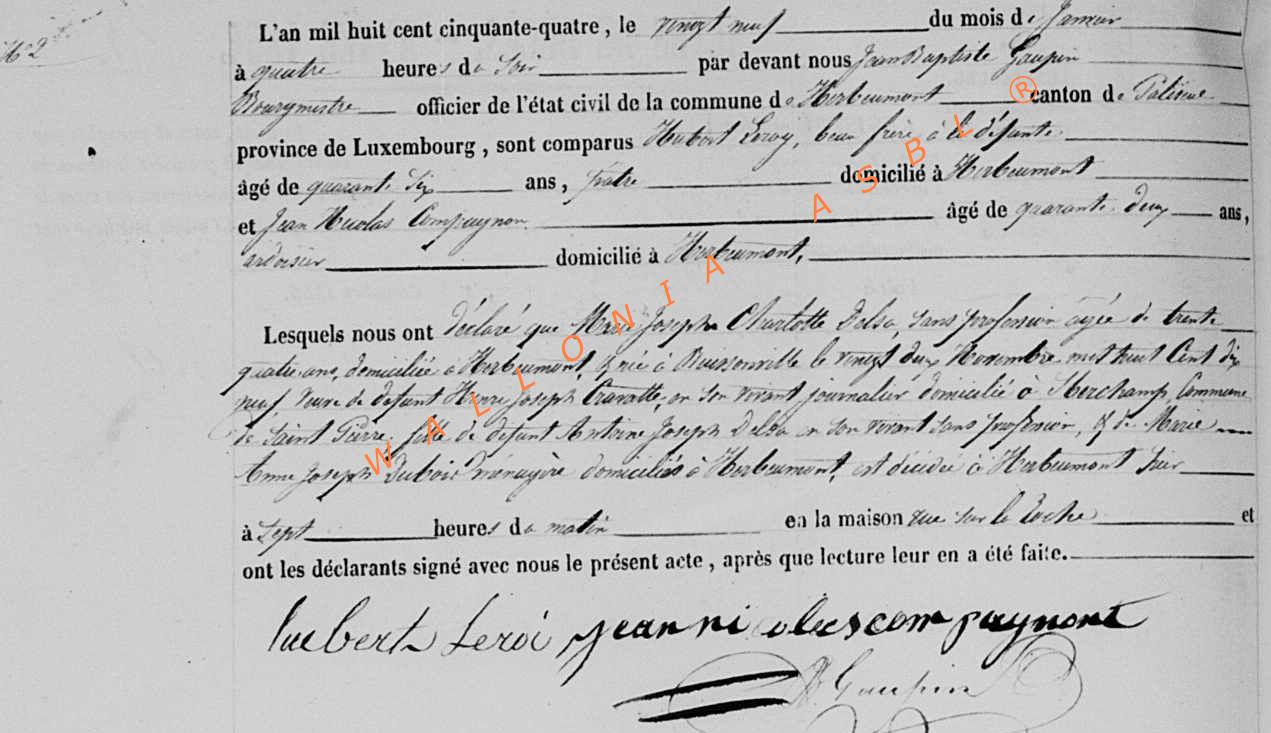 N° 2
L'an mil huit cent cinquante-quatre, le vingt neuf du mois de Janvier
à quatre heures du Soir par devant nous Jean Baptiste Gaupin
Bourgmestre officier de l'état civil de la commune de Herbeumont canton de Paliseul
province de Luxembourg, sont comparus Hubert Leroy, beau frère à la défunte
âgé de quarante six ans, domicilié à Herbeumont
et Jean Nicolas Compagnon âgé de quarante deux ans,
ardoisier domicilié à Herbeumont,
Lesquels nous ont déclaré que Marie Joseph Charlotte Delsa, sans profession agée de trente
quatre ans, domiciliée à Herbeumont, & née à Buissonville le vingt deux Novembre mil huit Cent dix
neuf Veuve de defunt Henri Joseph Cravatte, en son vivant journalier domicilié à Commune
de Saint Pierre, fille de defunt Antoine Joseph Delsa en son vivant sans profession, & de Marie
Anne Joseph Dubois ménagère domiciliés à Herbeumont, est décédée à Herbeumont hier
à Sept heures du matin en la maison rue sur la Roche et
ont les déclarants signé avec nous le présent acte, après que lecture leur en a été faite.
hubert Leroi jean nicolas compagnont
Gaupin
WALLONIA ASBL ®